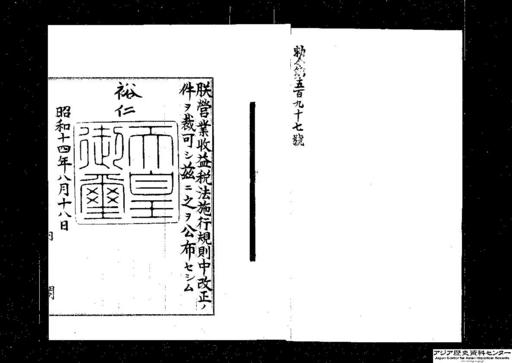 勅令第五百九十七號
朕營業收益税法施行規則中改正ノ
件ヲ裁可シ茲ニ之ヲ公布セシム
裕仁
天皇御璽
昭和十四年八月十八日
内閣
アジア歴史資料センター
Japan Center for Asian Historical Records